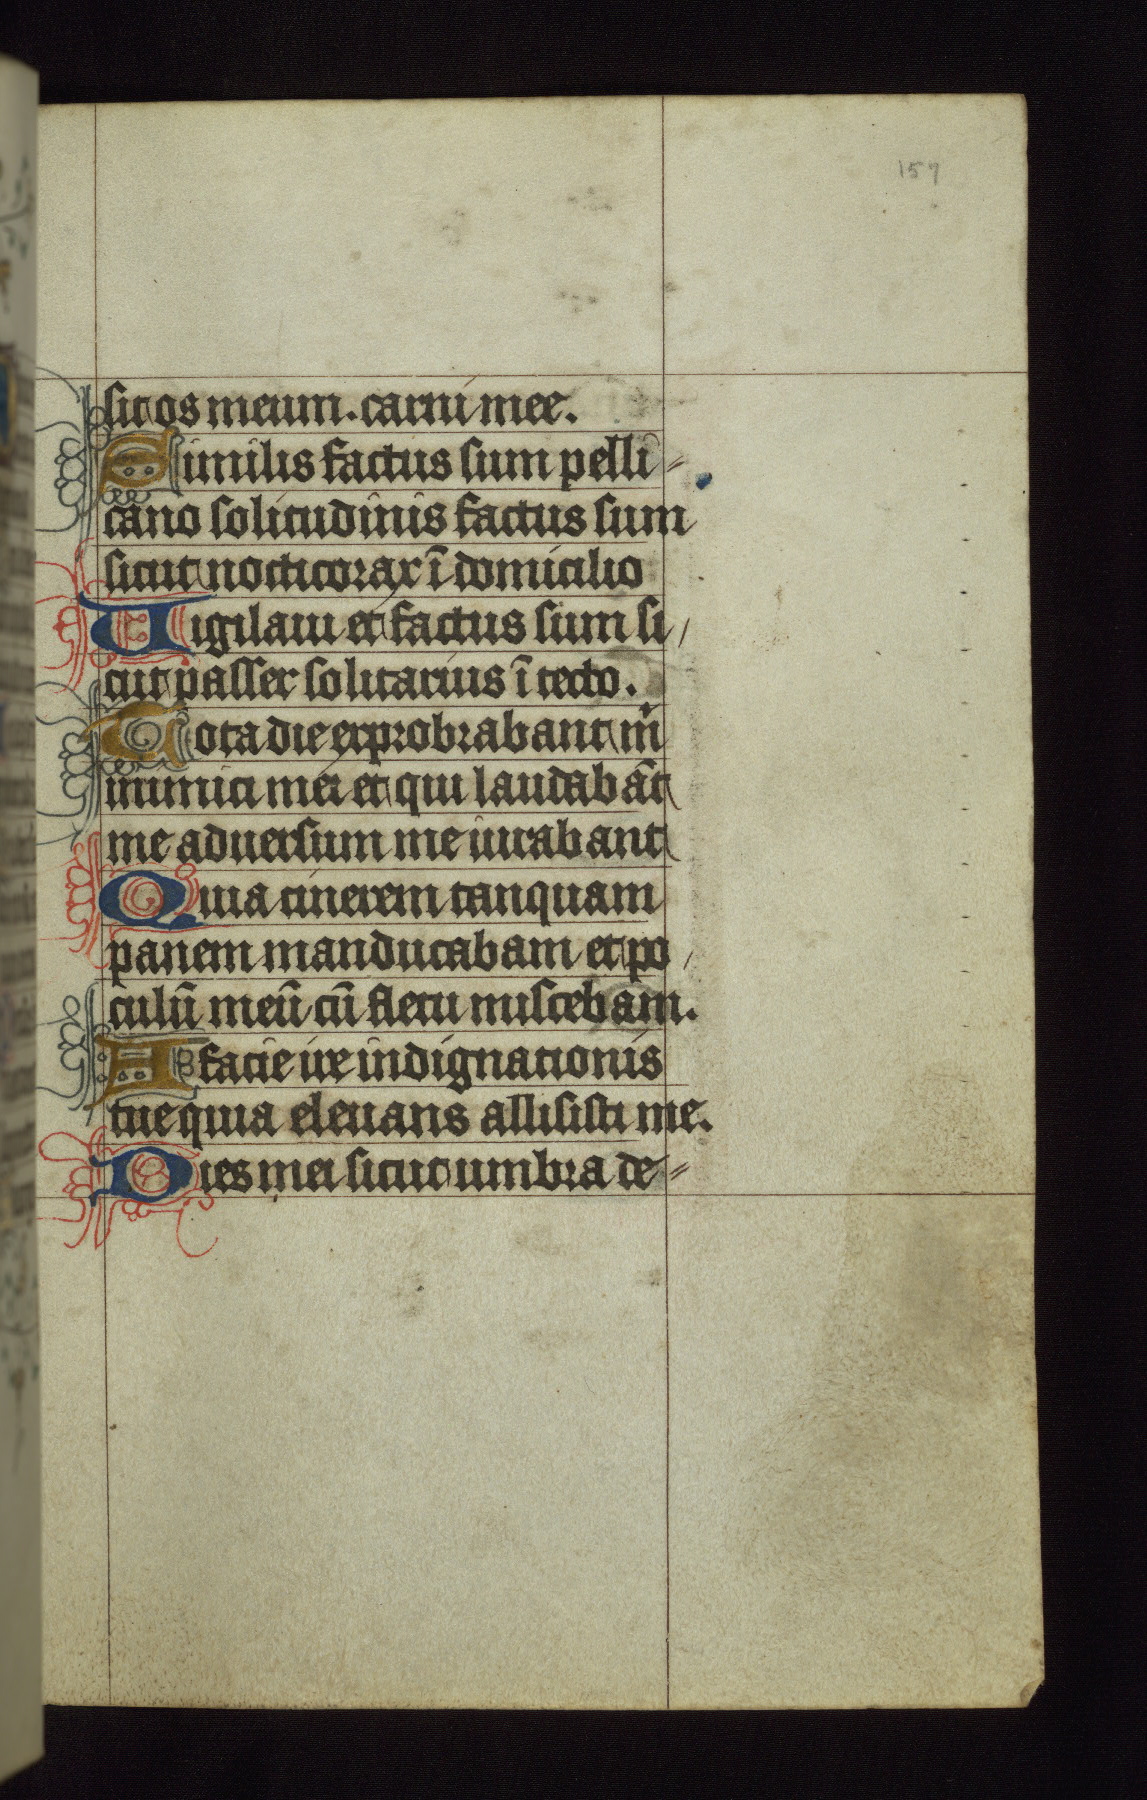 157
sit os meum. carni mee.
Similis factus sum pelli⸗
cano solitudinis factus sum
sicut nocticorax ī domicilio
Uigilaui et factus sum si/
cut passer solitarius ī tecto.
Tota die exprobrabant m̄
inimici mei et qui laudabāt
me aduersum me iurabant
Quia cinerem tanquam
panem manducabam et po/
culū meū cū fletu miscebam.
A facie ire indignationis
tue quia eleuans allisisti me.
Dies mei sicut umbra de⸗